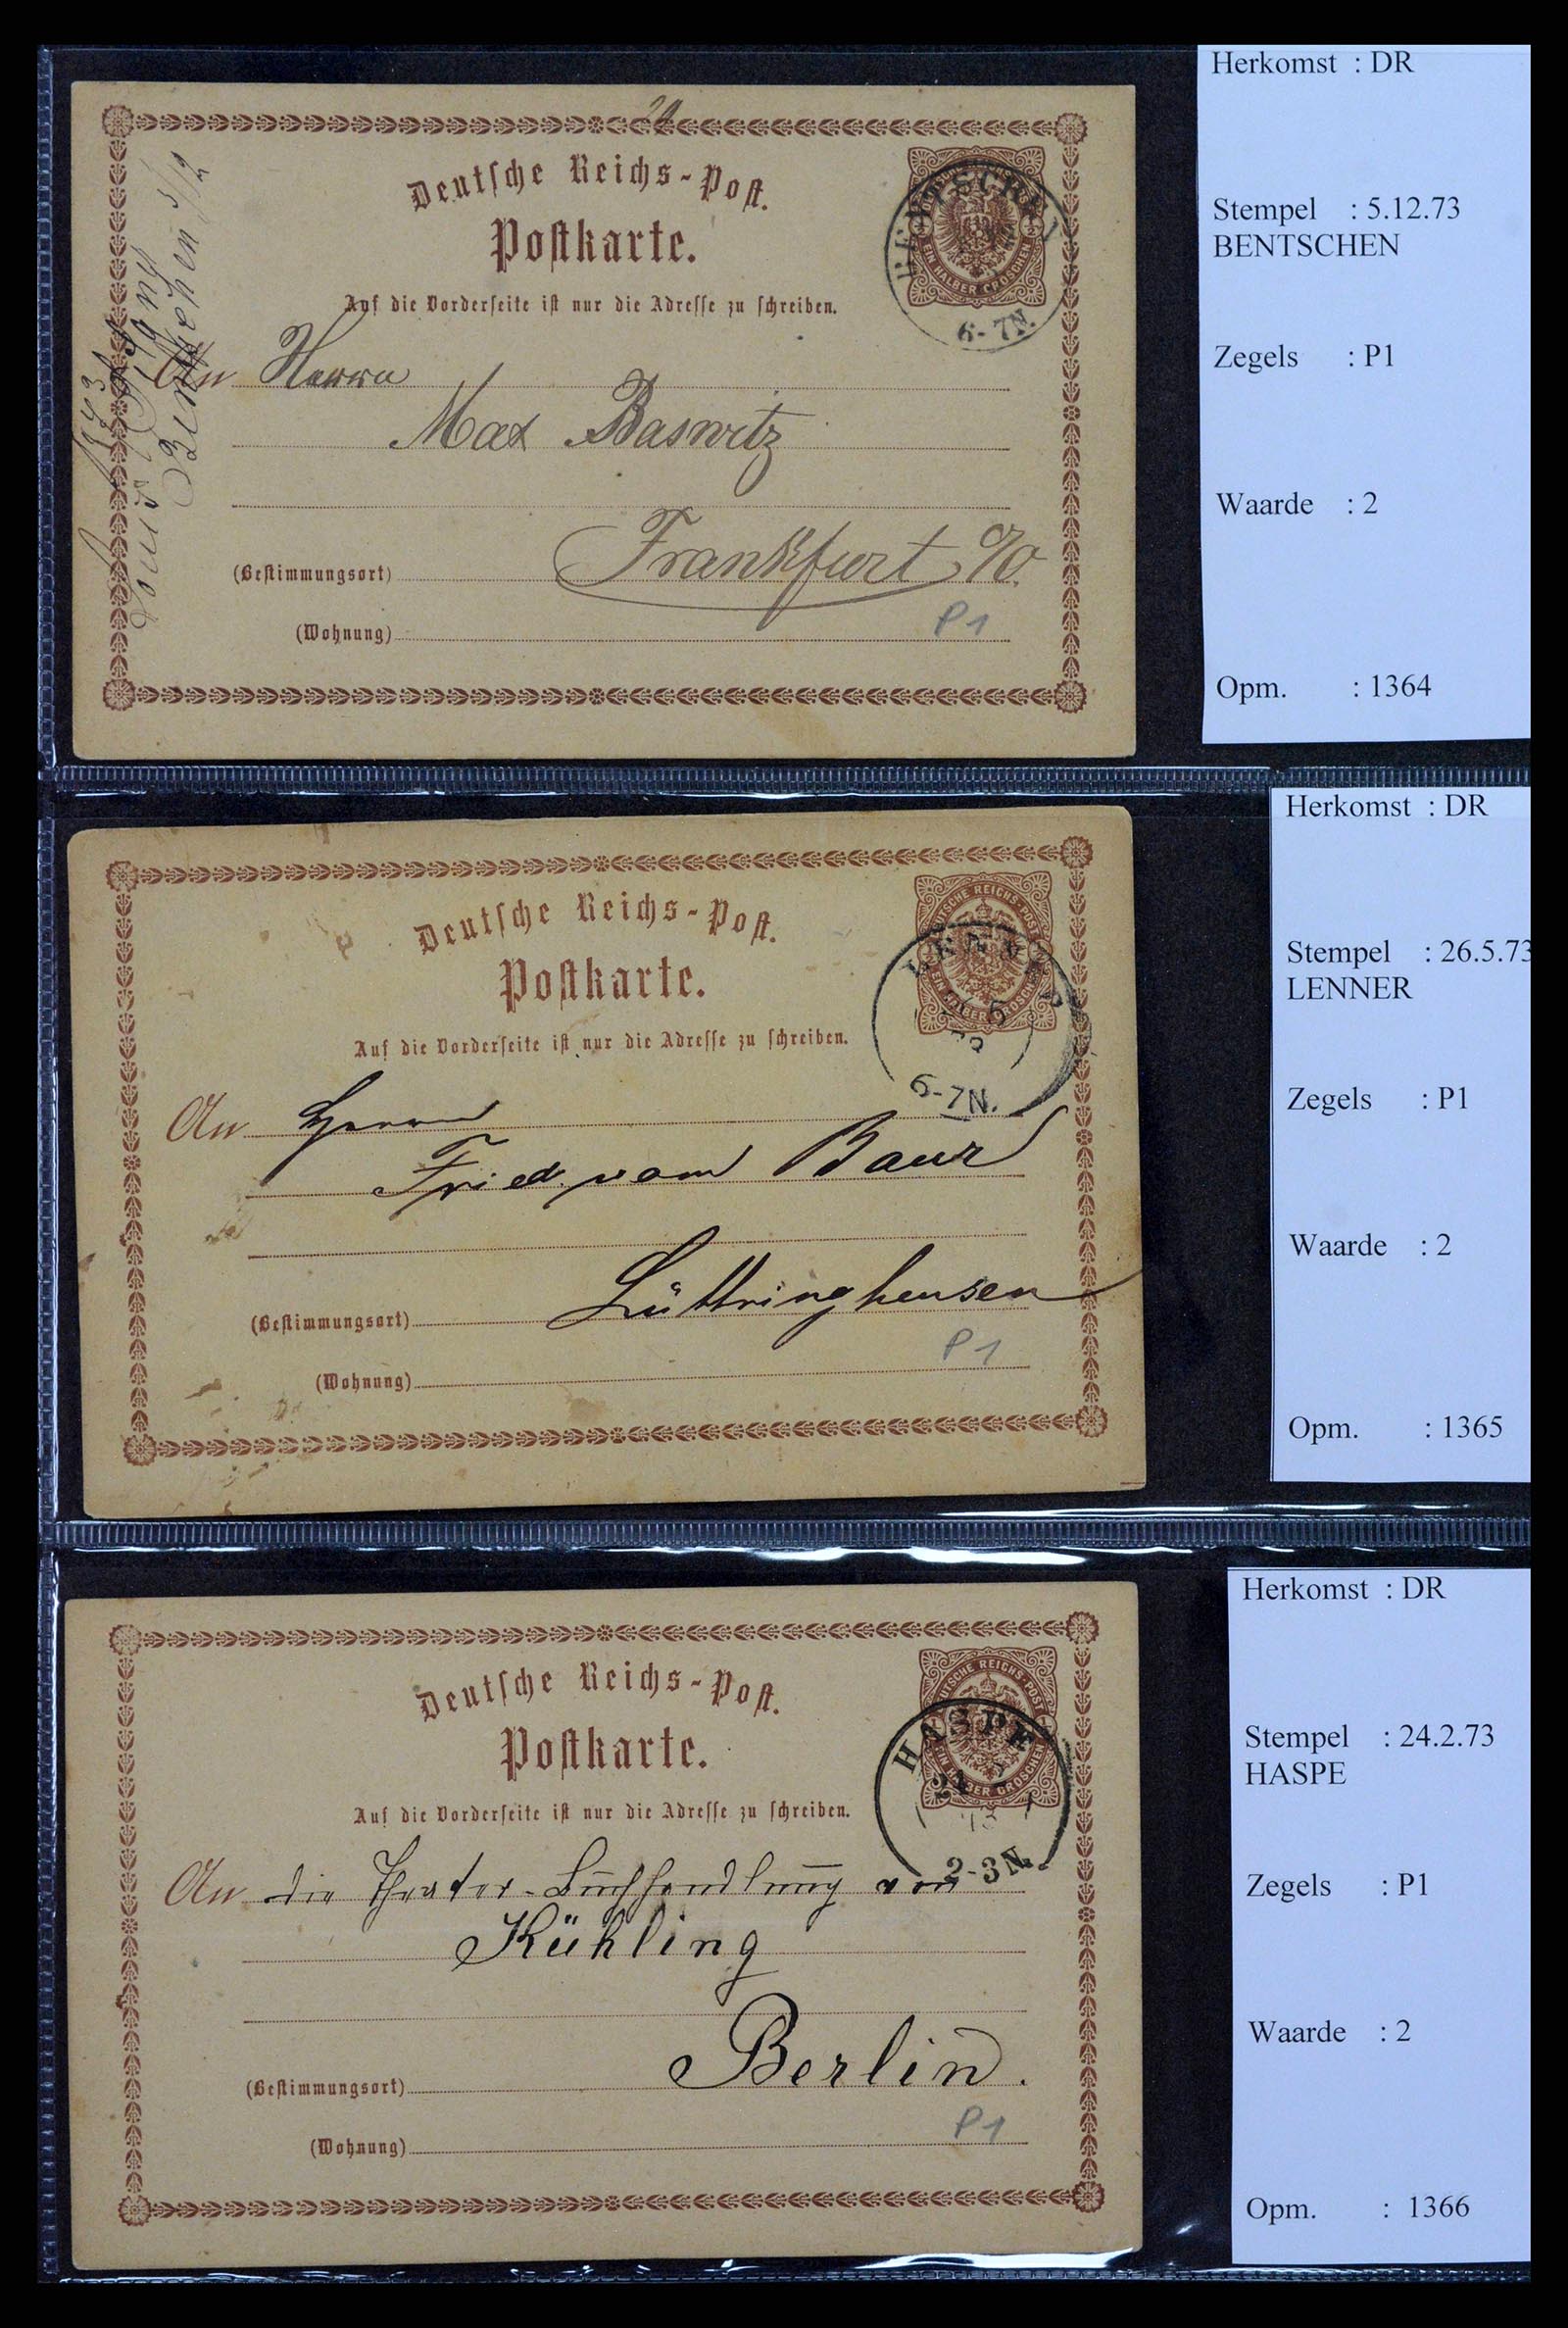 24
Deutsche Reichs-Post.
Postkarte.
Auf die Vorderseite ist nur die Adresse zu schreiben.
EIN HALBER GROSCHEN
6-7N.
An Herrn
Max Baswitz
(Bestimmungsort) Frankfurt a/O.
(Wohnung)
P1
Herkomst : DR
Stempel : 5.12.73
BENTSCHEN
Zegels : P1
Waarde : 2
Opm. : 1364
Deutsche Reichs-Post.
Postkarte.
Auf die Vorderseite ist nur die Adresse zu schreiben.
DEUTSCHE REICHS-POST
6-7N.
An Herrn
Fried. vom Baur
(Bestimmungsort) Lüttringhausen
(Wohnung)
P1
Herkomst : DR
Stempel : 26.5.73
LENNER
Zegels : P1
Waarde : 2
Opm. : 1365
Deutsche Reichs-Post.
Postkarte.
Auf die Vorderseite ist nur die Adresse zu schreiben.
DEUTSCHE REICHS-POST
EIN HALBER GROSCHEN
HASPE
24
2-3N.
An die Theater-Buchhandlung von
Kühling
(Bestimmungsort) Berlin.
(Wohnung)
P1
Herkomst : DR
Stempel : 24.2.73
HASPE
Zegels : P1
Waarde : 2
Opm. : 1366